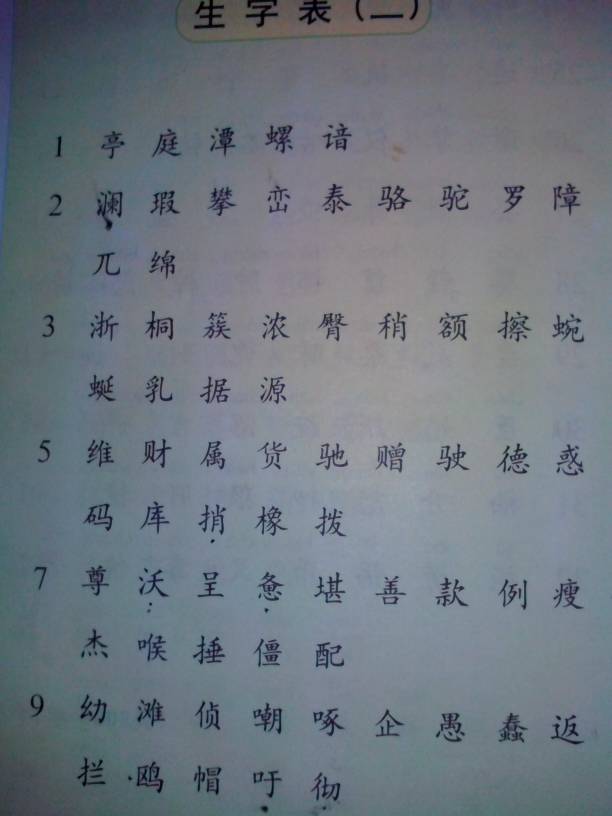 生字表(二)
1 亭 庭 潭 螺 谙
2 澜 瑕 攀 峦 泰 骆 驼 罗 障
兀 绵
3 浙 桐 簇 浓 臀 稍 额 擦 蜿
蜒 乳 据 源
5 维 财 属 货 驰 赠 驶 德 惑
码 库 捎 橡 拨
7 尊 沃 呈 惫 堪 善 款 例 瘦
杰 喉 捶 僵 配
9 幼 滩 侦 嘲 啄 企 愚 蠢 返
拦 鸥 帽 吁 彻